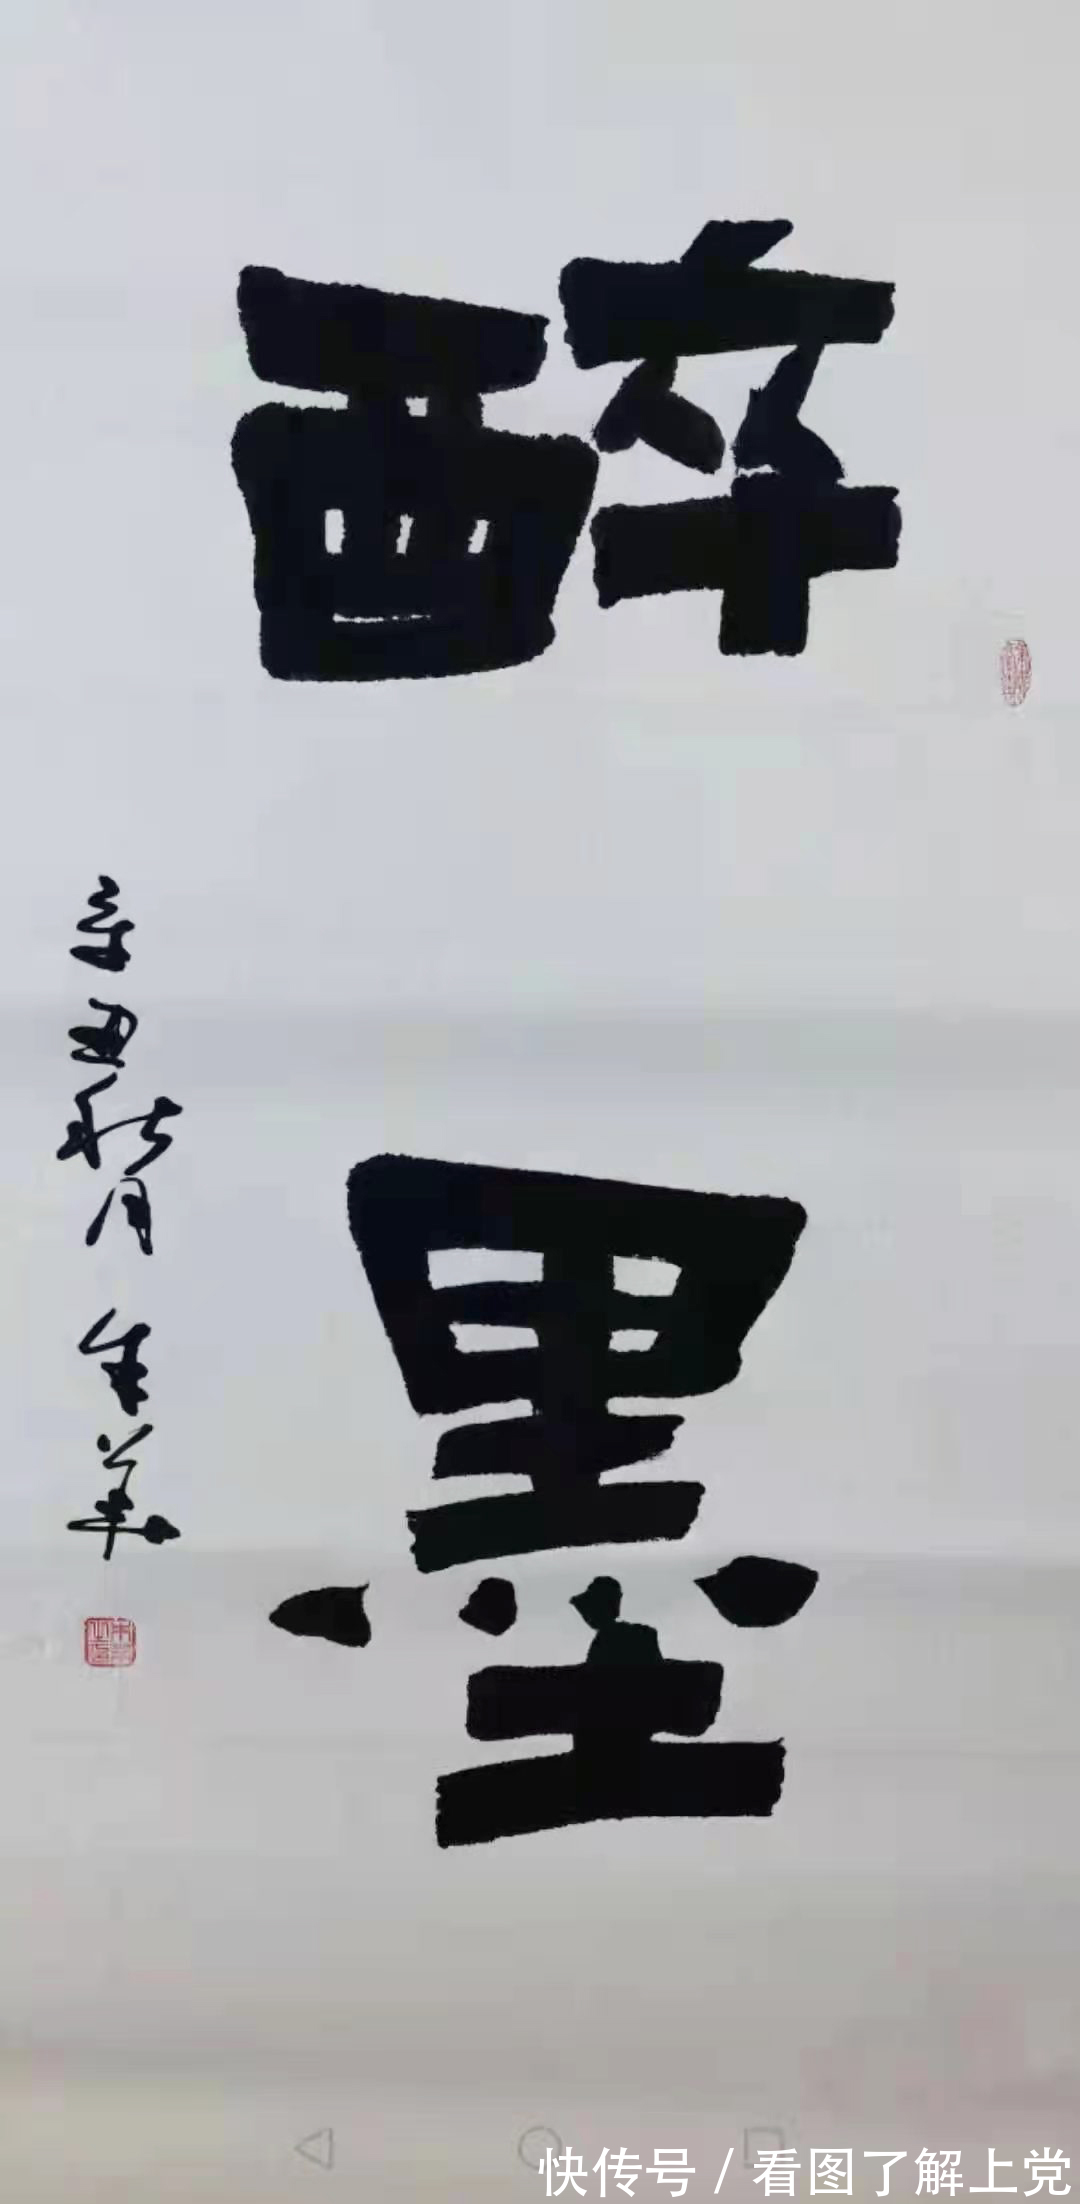 醉墨
辛丑秋月 朱華
快传号 / 看图了解上党